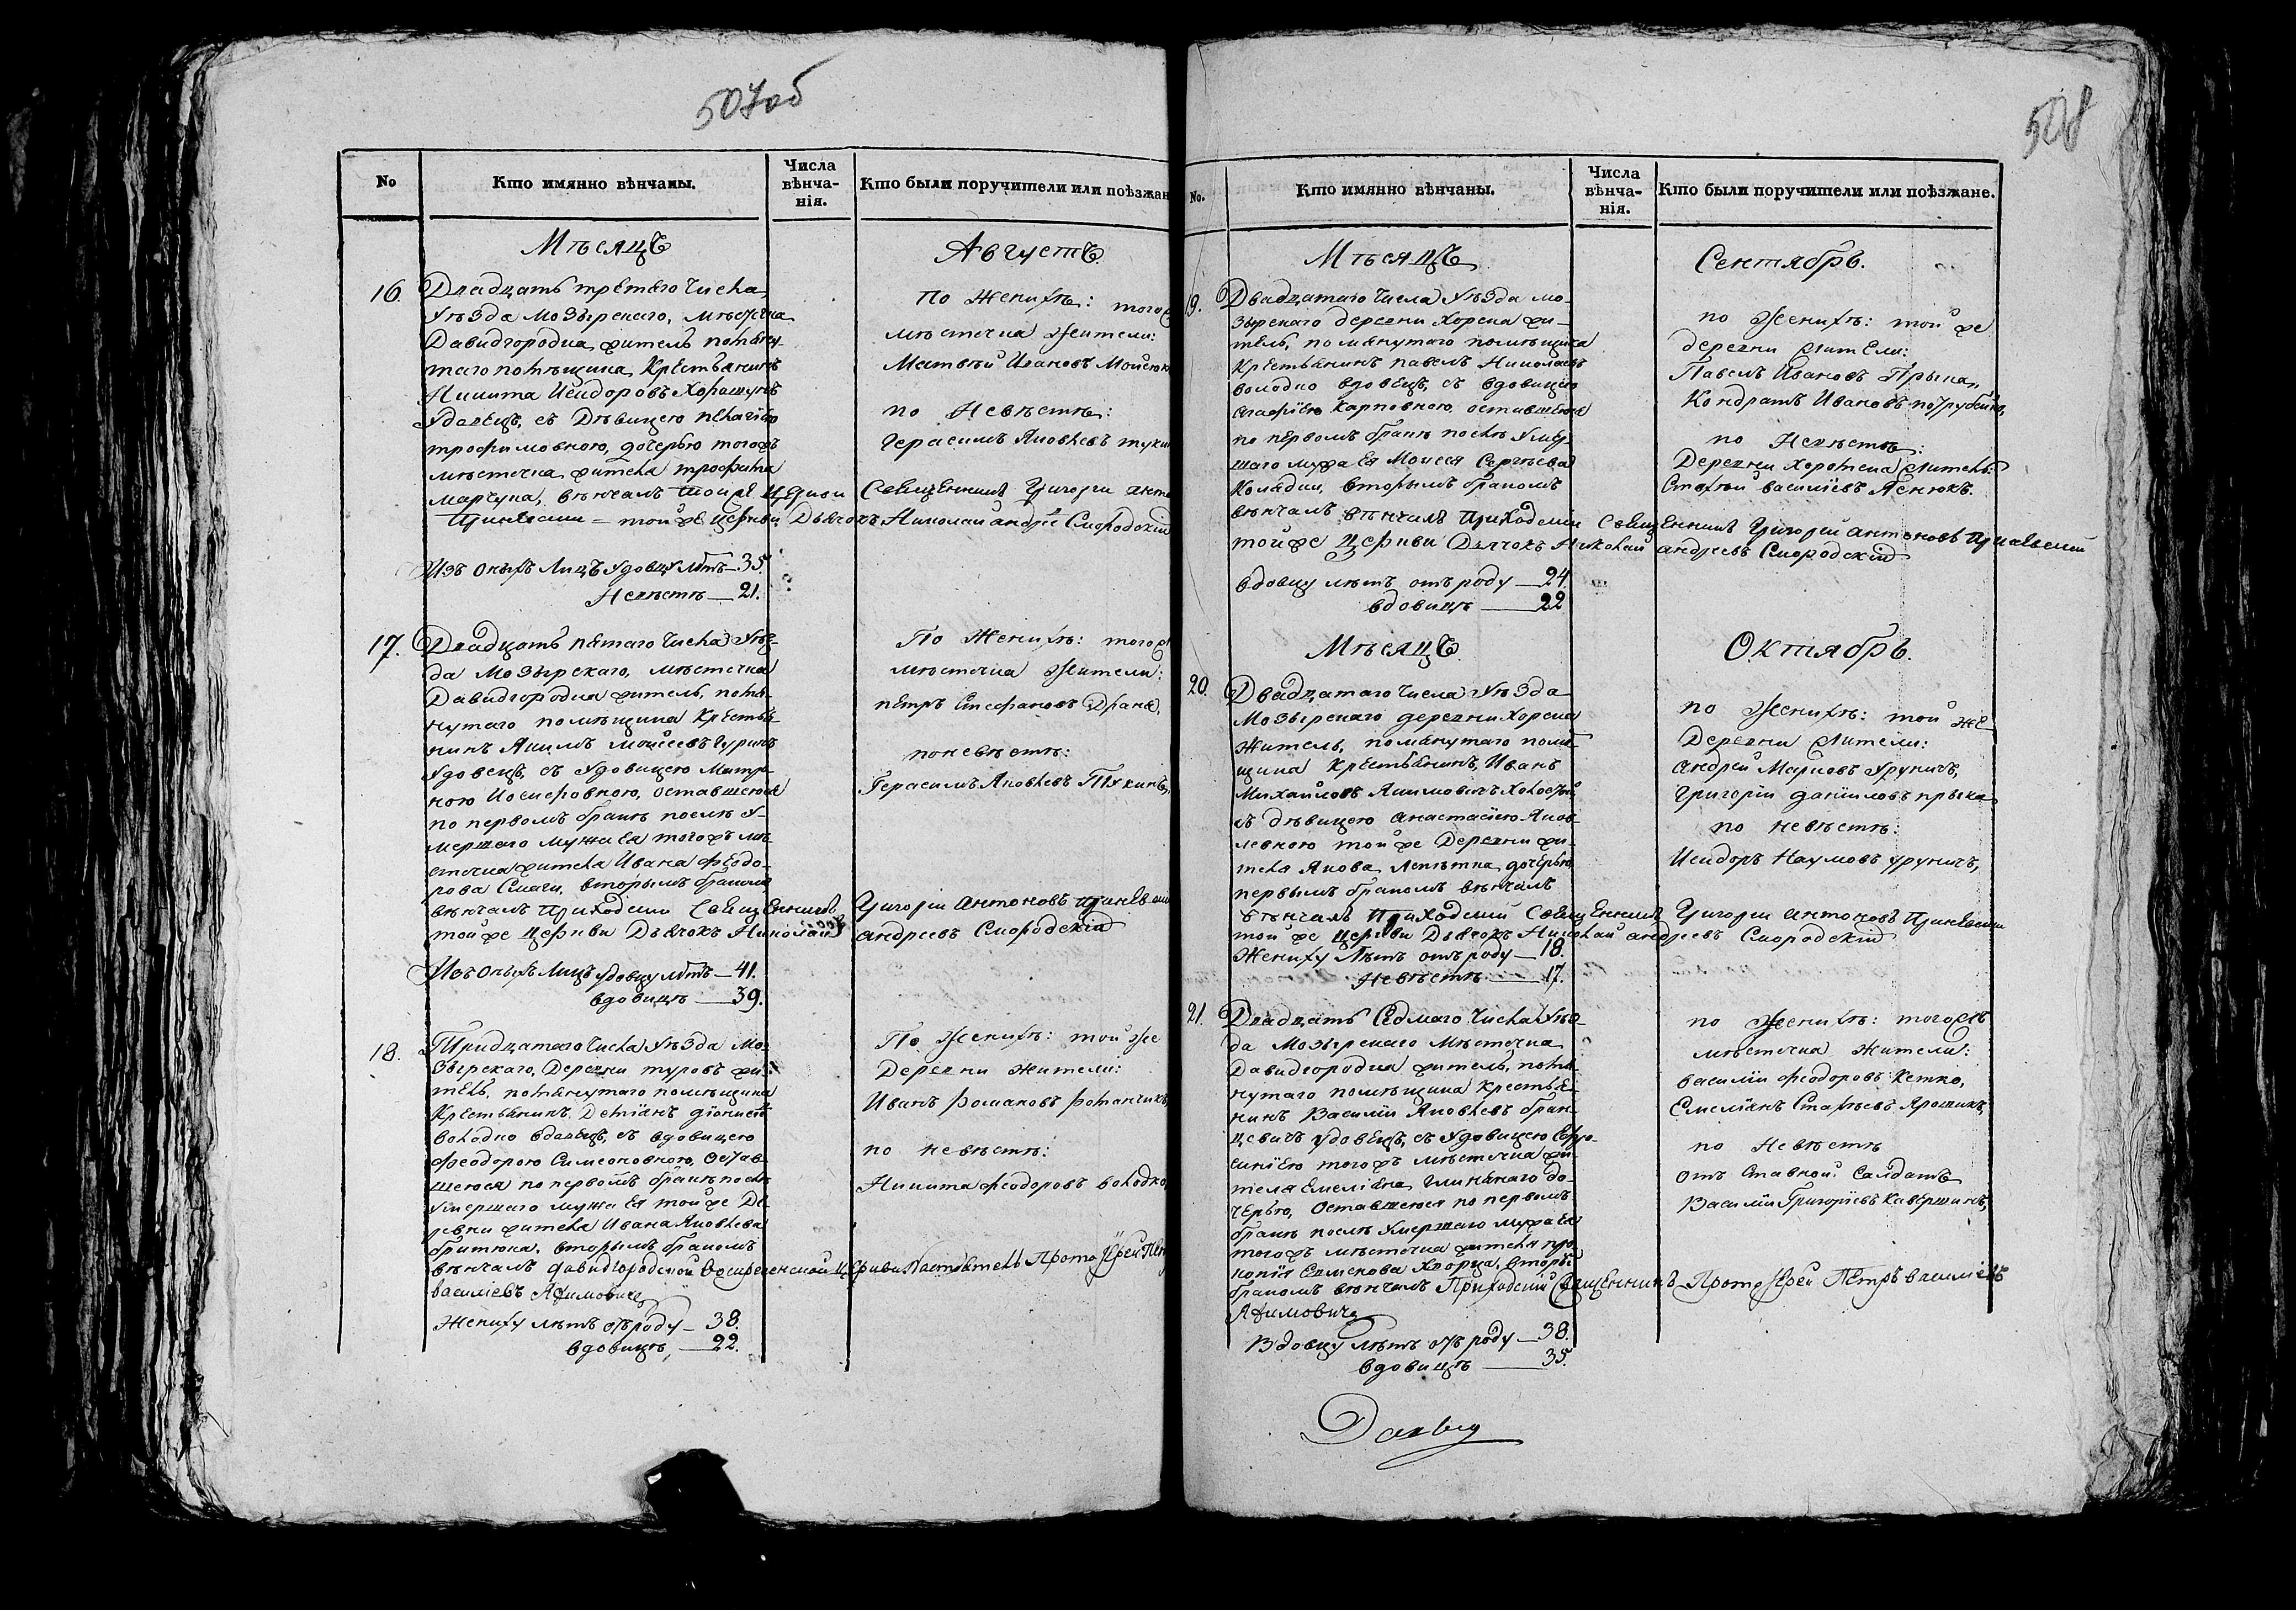 507об
No
Кто имянно вѣнчаны.
Числа вѣнча-нія.
Кто были поручители или поѣзжан
Мѣсяцъ
Августъ.
16. Двадцать третьяго числа,
уѣзда Мозырскаго, мѣстечка
Давидгородка житель помяну-
таго помѣщика, крестьянинъ
Никита Исидоровъ Хорошунъ
удовецъ, съ дѣвицею Пелагіею
Трофимовною, дочерью тогожъ
мѣстечка жителя Трофима
Марчука, вѣнчалъ тойже церкви Священникъ Григорій Анто
тойже церкви Дьячокъ Николай Андрее Смородскій
По Женихѣ: тогож
мѣстечка жители:
Матвѣй Ивановъ Мойсюк
по Невѣстѣ:
Герасимъ Яковлевъ Тукин
Изъ оныхъ лицъ удовцу лѣтъ — 35.
Невѣстѣ — 21.
17. Двадцать пятаго числа уѣз-
да Мозырскаго, мѣстечка
Давидгородка житель, помя-
нутаго помѣщика крестья-
нинъ Якимъ Моисеевъ Гуринъ
удовецъ, съ удовицею Матро-
ною Иосифовною, оставшеюся
по первомъ бракѣ послѣ у-
мершаго мужа ея тогожъ мѣ-
стечка жителя Ивана Феодо-
рова Смаги, вторымъ бракомъ
вѣнчалъ Приходскій Священникъ Григорій Антоновъ
тойже церкви Дьячокъ Николай Андреевъ Смородскій
По Женихѣ: тогож
мѣстечка жители:
Петръ Стефановъ Дране,
по невѣстѣ:
Герасимъ Яковлевъ Тукинъ,
Изъ оныхъ лицъ удовцу лѣтъ — 41.
вдовицѣ — 39.
18. Тридцатаго числа уѣзда Мо-
зырскаго, деревни Туровъ жи-
тель, помянутаго помѣщика
крестьянинъ Демїанъ Дїонисїевъ
Володко вдовецъ, съ вдовицею
Феодорою Симеоновною, остав-
шеюся по первомъ бракѣ послѣ
умершаго мужа ея тойже де-
ревни жителя Ивана Яковлева
Бритюка, вторымъ бракомъ
вѣнчалъ Давидгородской Воскресенской церкви Настоятель Протоіерей Пет
Васильевъ Акимовичъ
По Женихѣ: той же
деревни жители:
Иванъ Романовъ Романчикъ
по невѣстѣ:
Никита Феодоровъ Володко,
Жениху лѣтъ отъ роду — 38.
вдовицѣ, — 22.
508
No.
Кто имянно вѣнчаны.
Числа вѣнча-нія.
Кто были поручители или поѣзжане.
Мѣсяцъ
Сентябрь.
19. Двадцатаго числа уѣзда Мо-
зырскаго деревни Хорска жи-
тель, помянутаго помѣщика
крестьянинъ Павелъ Николаевъ
Володко вдовецъ, съ вдовицею
Агафіею Карповною, оставшеюся
по первомъ бракѣ послѣ умер-
шаго мужа ея Моисея Сергѣева
Колядки, вторымъ бракомъ
вѣнчалъ вѣнчалъ Приходскій Священникъ Григорій Антоновъ
тойже Церкви Дьячокъ Николай Андреевъ Смородскій
по Женихѣ: той же
деревни жители:
Павелъ Ивановъ Прыка,
Кондратъ Ивановъ
по Невѣстѣ:
Деревни Хоромска житель:
Стефанъ Василїевъ Пенюкъ.
вдовцу лѣтъ отъ роду — 24.
вдовицѣ — 22
Мѣсяцъ
Октябрь.
20. Двадцатаго числа уѣзда
Мозырскаго деревни Хорска
житель, помянутаго помѣ-
щика крестьянинъ, Иванъ
Михайловъ Якимовичъ холостый
съ дѣвицею Анастасїею Яков-
левною тойже деревни жи-
теля Якова Лепетка, дочерью
первымъ бракомъ вѣнчалъ
вѣнчалъ Приходскій Священникъ Григорій Антоновъ
той же церкви Дьячокъ Николай Андреевъ Смородскій
по Женихѣ: той же
деревни жители:
Андрей Марковъ Урупичъ,
Григорій Данїиловъ Прыка
по невѣстѣ:
Исидоръ Наумовъ Урупичъ,
Жениху лѣтъ отъ роду — 18.
Невѣстѣ — 17.
21. Двадцать седмаго числа уѣз-
да Мозырскаго мѣстечка
Давидгородка житель, помя-
нутаго помѣщика крестья-
нинъ Василій Яковлевъ Бран-
цевичъ удовецъ, съ удовицею Ефро-
синїею тогожъ мѣстечка жи-
теля Емелїана Глинянаго до-
черью, оставшеюся по первомъ
бракѣ послѣ умершаго мужа ея
тогожъ мѣстечка жителя Про-
копїя Семенова Хворца, вторы
бракомъ вѣнчалъ Приходскій Священникъ Протоіерей Петръ Васильевъ
Акимовичъ
по Женихѣ: тогожъ
мѣстечка жители:
Василїй Феодоровъ Кетко,
Емелїанъ Стафѣевъ Ярошикъ,
по Невѣстѣ
Отъ ставной Салдатъ
Василїй Григорїевъ Кавершинъ,
Вдовцу лѣтъ отъ роду — 38.
вдовицѣ — 35.